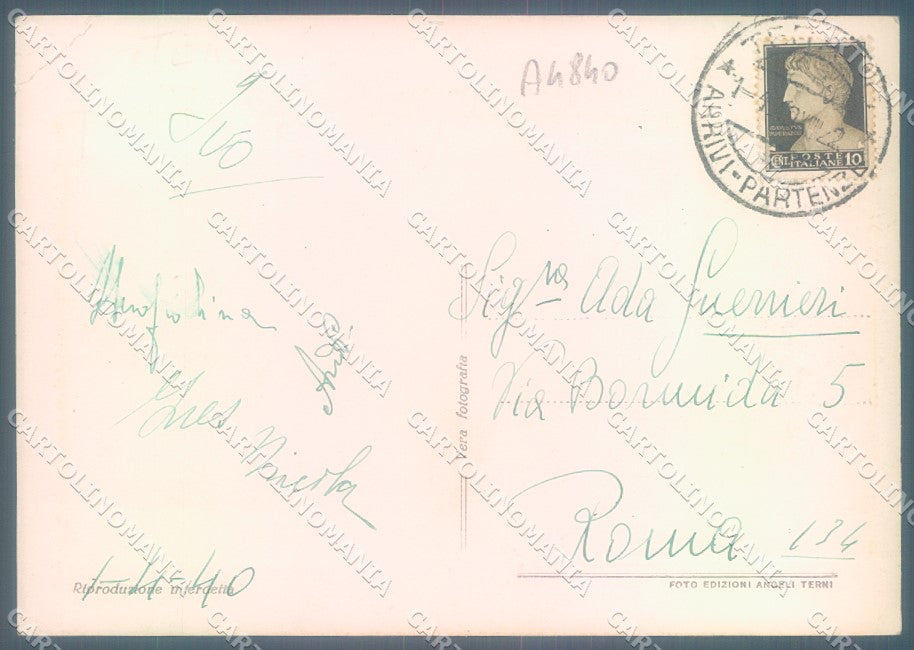 A4840
Ivo
Ines
1-4-40
Riproduzione interdetta
Vera fotografia
POSTE
ITALIANE
CENT. 10
ARRIVI-PARTENZE
Sig.ra Ada Guerrieri
Via Bormida 5
Roma 134
FOTO EDIZIONI ANGELI TERNI
CARTOLINOMANIA